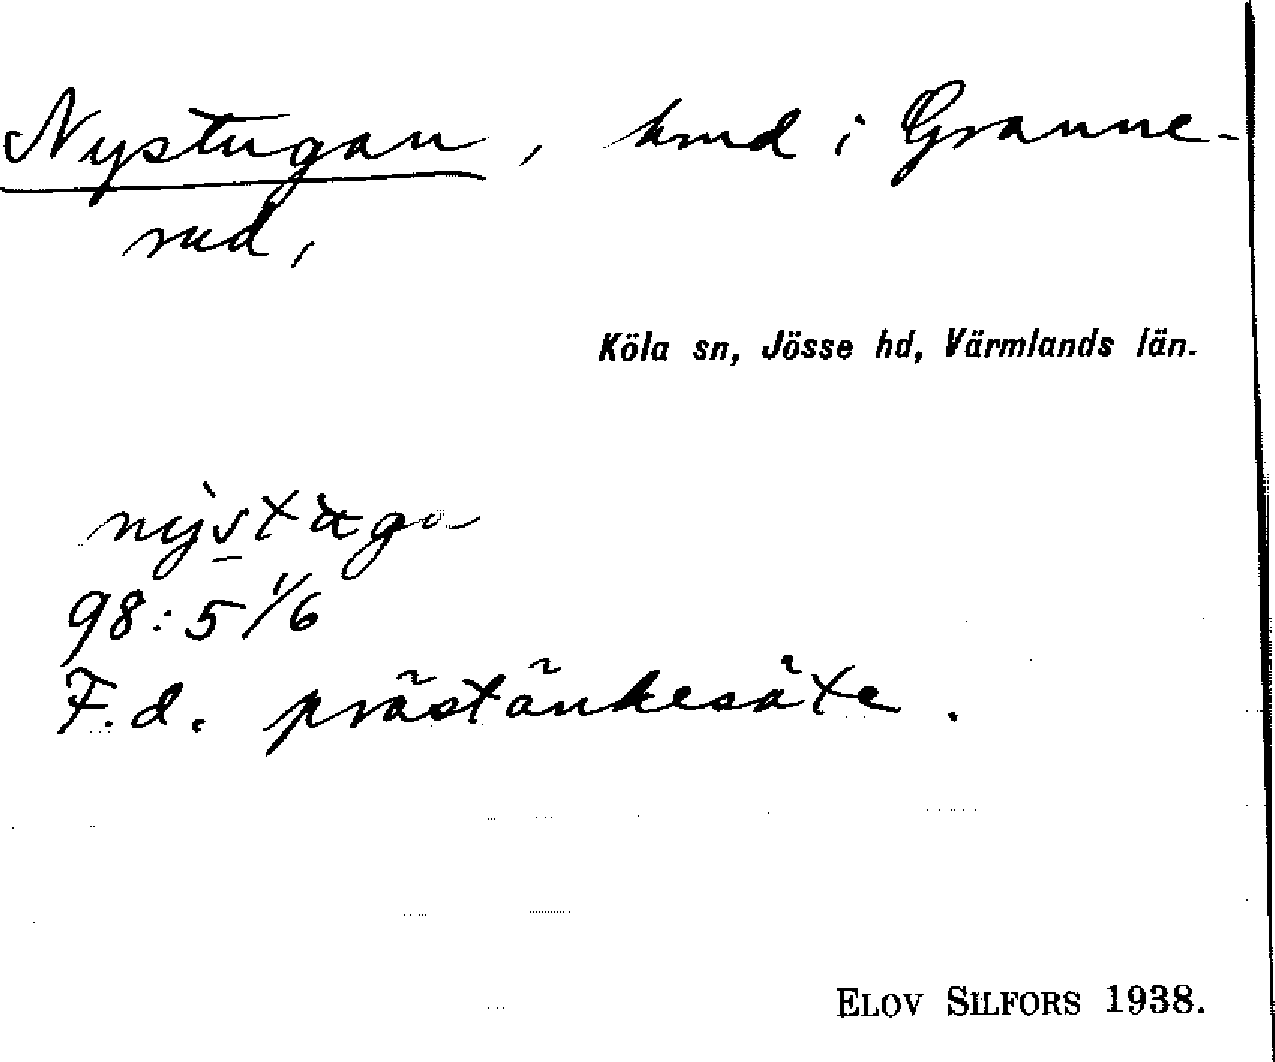 Nystugan, hmd i Granne-
rud,
Köla sn, Jösse hd, Värmlands län.
98:5 1/6
F.d. prästänkesäte.
ELOV SILFORS 1938.